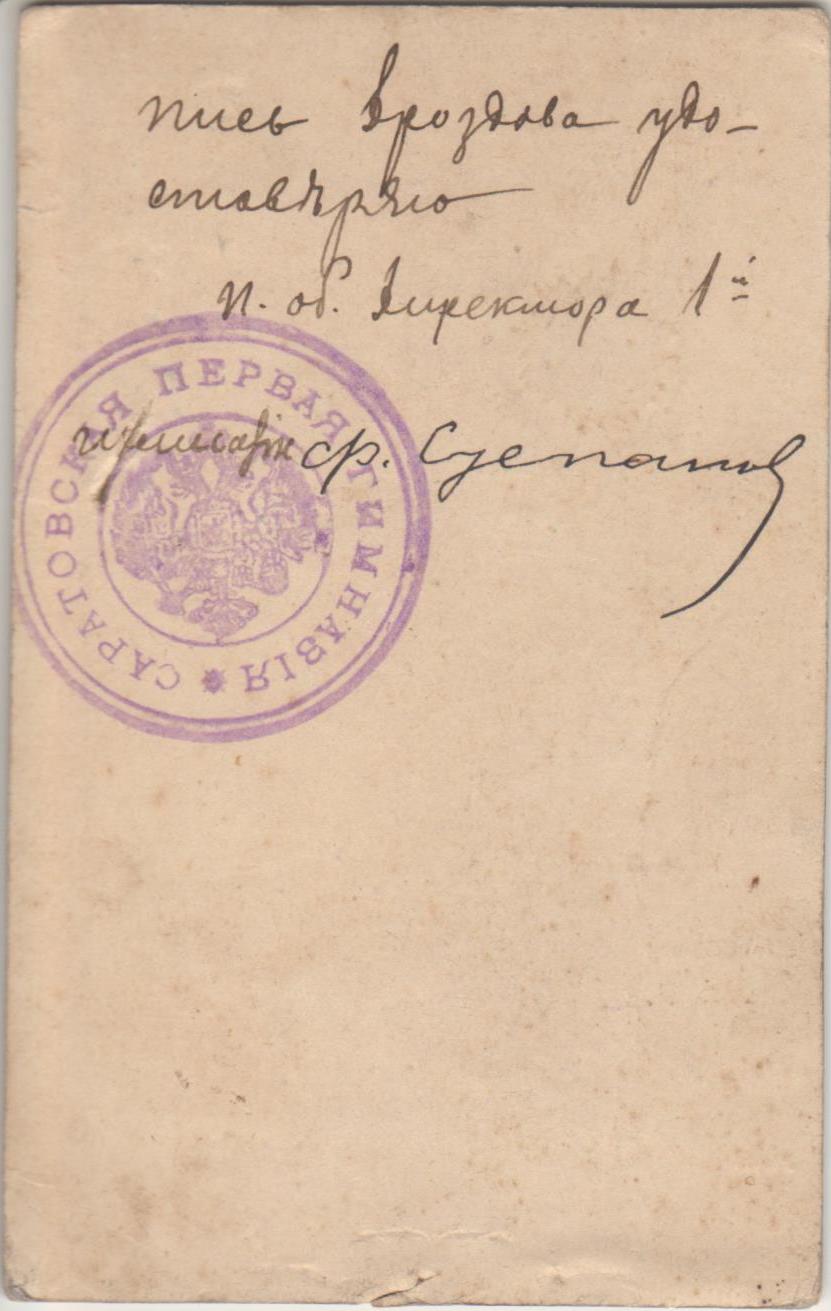 пись Дроздова удо-
стовѣряю
и. об. Директора 1й
гимназіи Ф. Степанов
САРАТОВСКАЯ ПЕРВАЯ ГИМНАЗІЯ